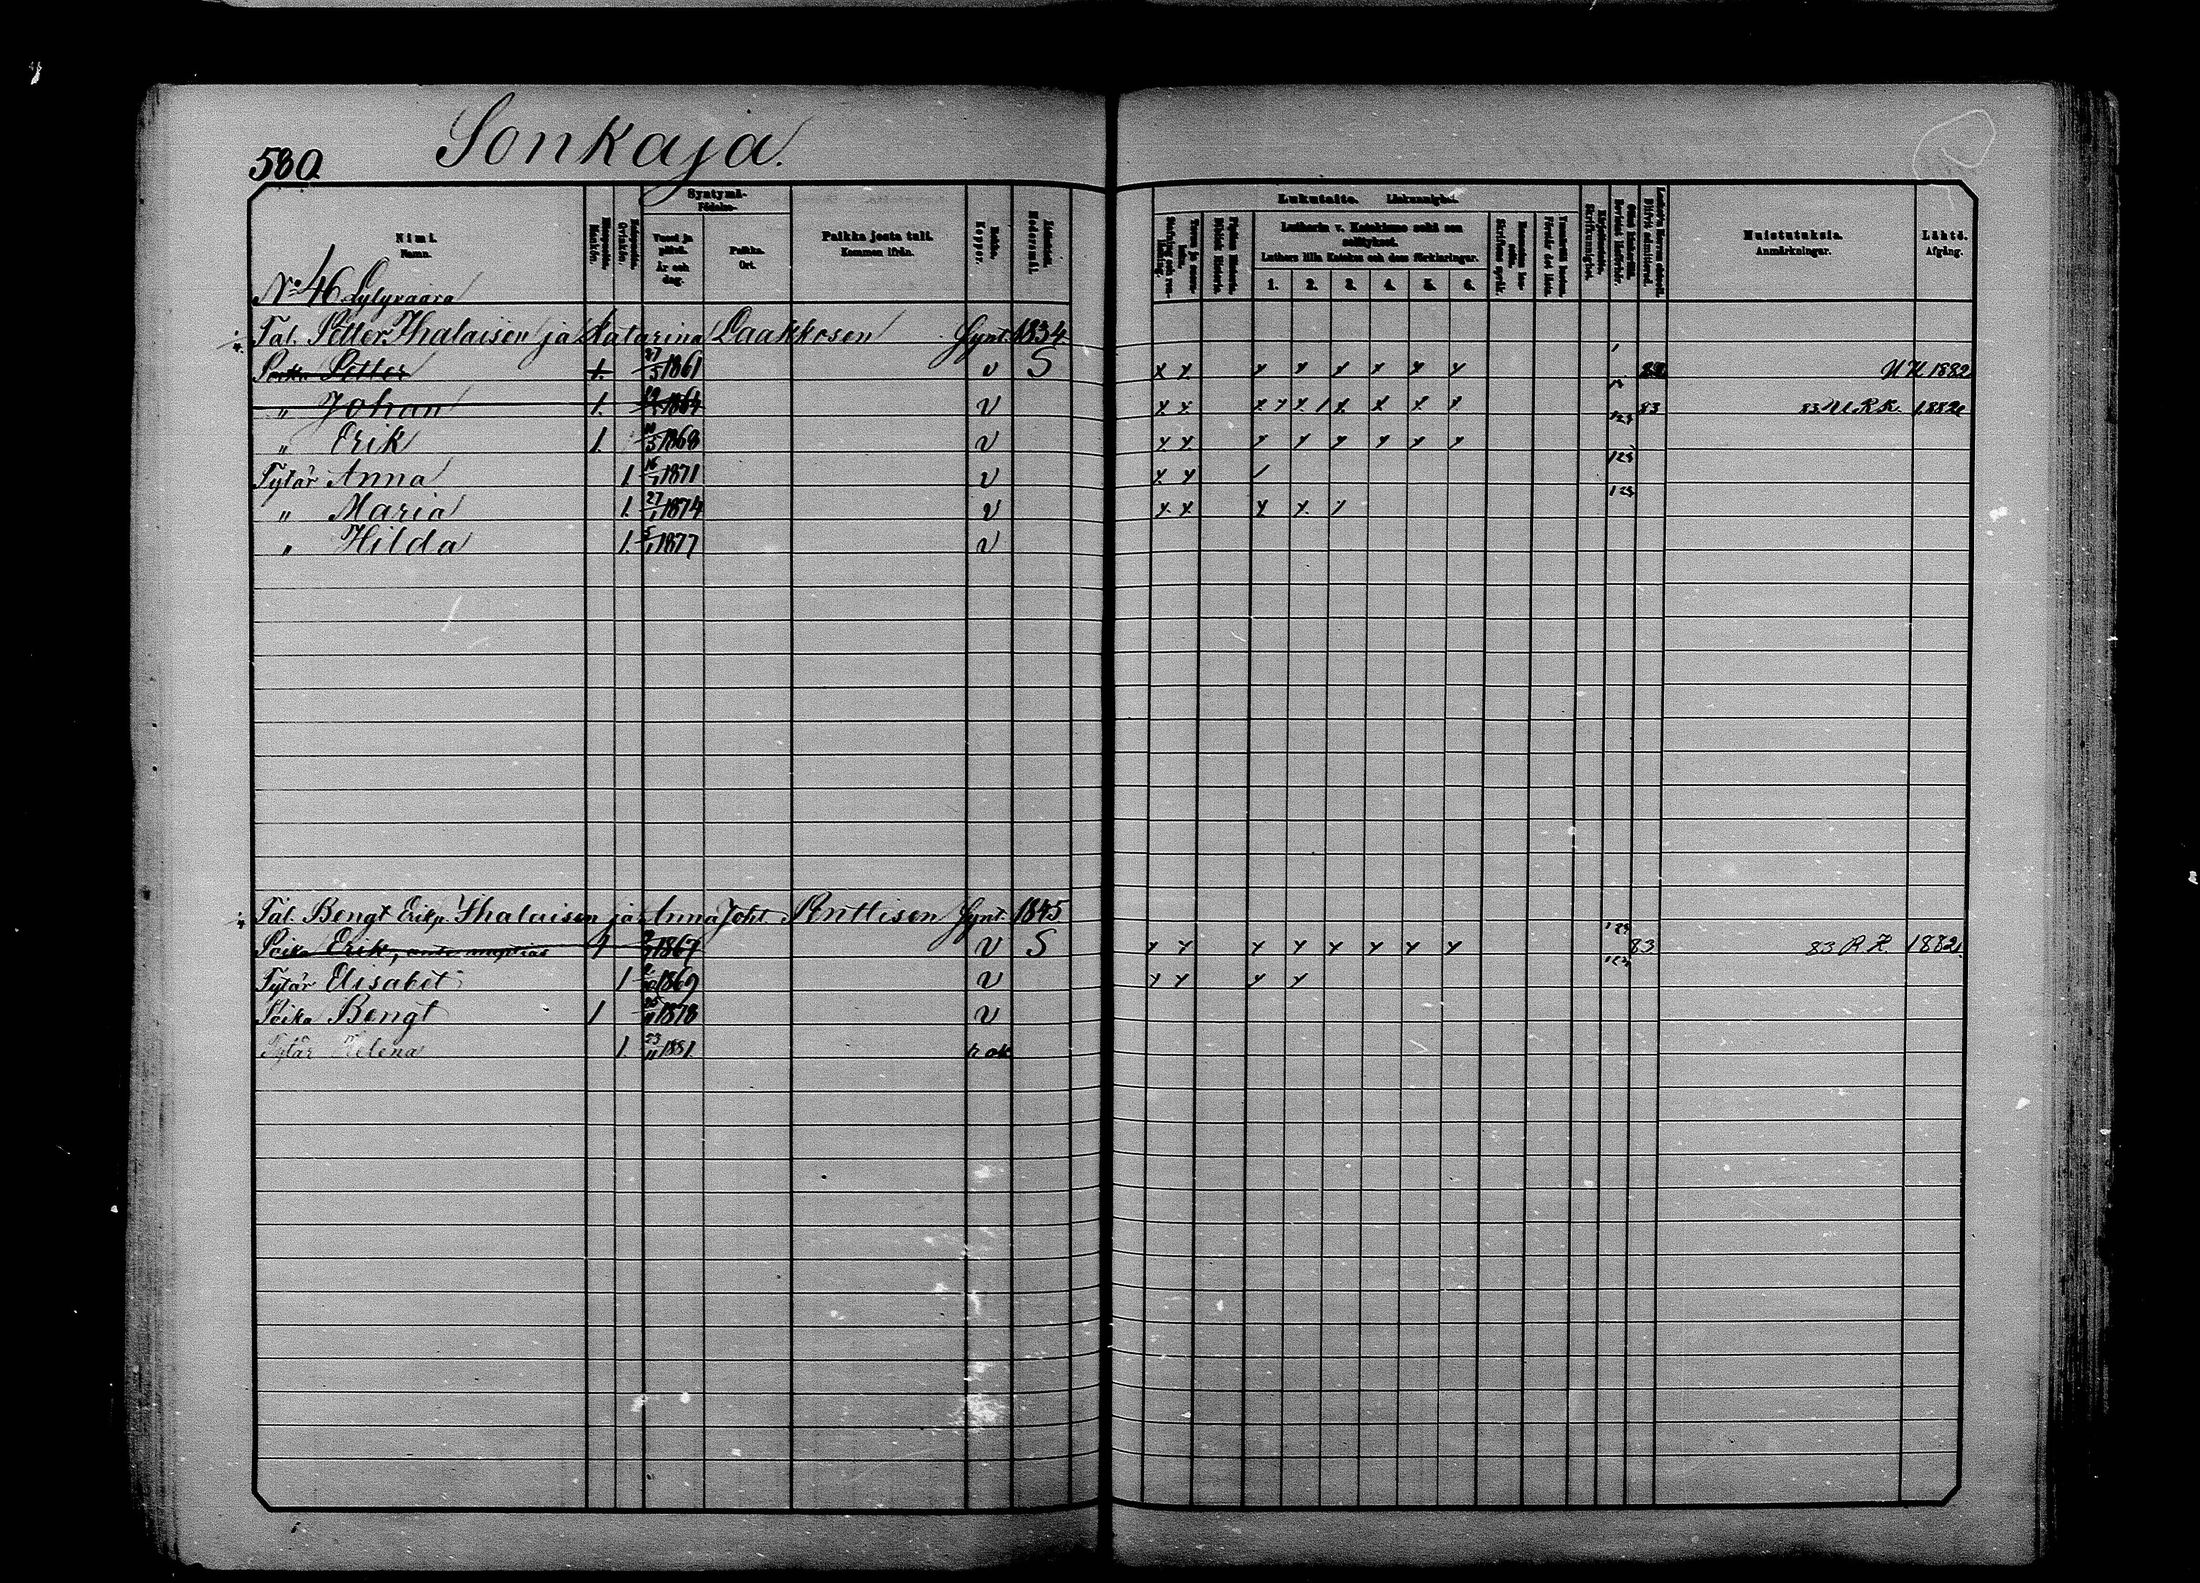 580 Sonkaja.
Nimi. Namn.
Miespuolia. Mankön.
Naispuolia. Qvinkön.
Syntymä- Födelse-
Vuosi ja päivä. År och dag.
Paikka. Ort.
Paikka josta tuli. Kommen ifrån.
Rokko. Koppor.
Lukutaito. Läskunnighet.
Lutherin v. Katekismo sekä sen selitykset.
Luthers lilla Katekes och dess förklaringar.
1. 2. 3. 4. 5. 6.
Muistutuksia. Anmärkningar.
Lähtö. Afgång.
No 46 Lylyvaara
Tal. Petter Ihalaisen ja Katarina Laakkosen Synt. 1834
Poika Petter 1. 27/5 1861 v S x x x x x x x x 82 U K 1882
" Johan 1. 1864 v x x x x x / x x x x 83 83 U. R. K. 1882
" Erik 1. 1868 v x x x x x x x x 123
Tytär Anna 1 16/1 1871 v x x / 123
" Maria 1. 27/1 1874 v x x x x x 123
" Hilda 1. 5/1 1877 v
Tal. Bengt Erikp. Ihalaisen ja Anna Joht. Penttisen Synt. 1845
Poika Erik, ante nuptias 1 1867 v S x x x x x x x x 123 83 83 R K. 1882
Tytär Elisabet 1 1869 v x x x x 123
Poika Bengt 1 25/11 1878 v
Tytär Helena 1. 23/11 1881. rok